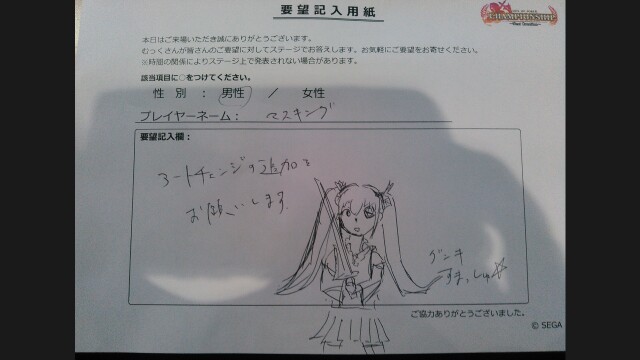 要望記入用紙
CHAMPIONSHIP
本日はご来場いただき誠にありがとうございます。
むっくさんが皆さんのご要望に対してステージでお答えします。お気軽にご要望をお寄せください。
※時間の関係によりステージ上で発表されない場合があります。
該当項目に○をつけてください。
性 別 : 男性 / 女性
プレイヤーネーム: マスキング
要望記入欄:
ートチェンジの追加を
お願いします
ご協力ありがとうございました。
© SEGA